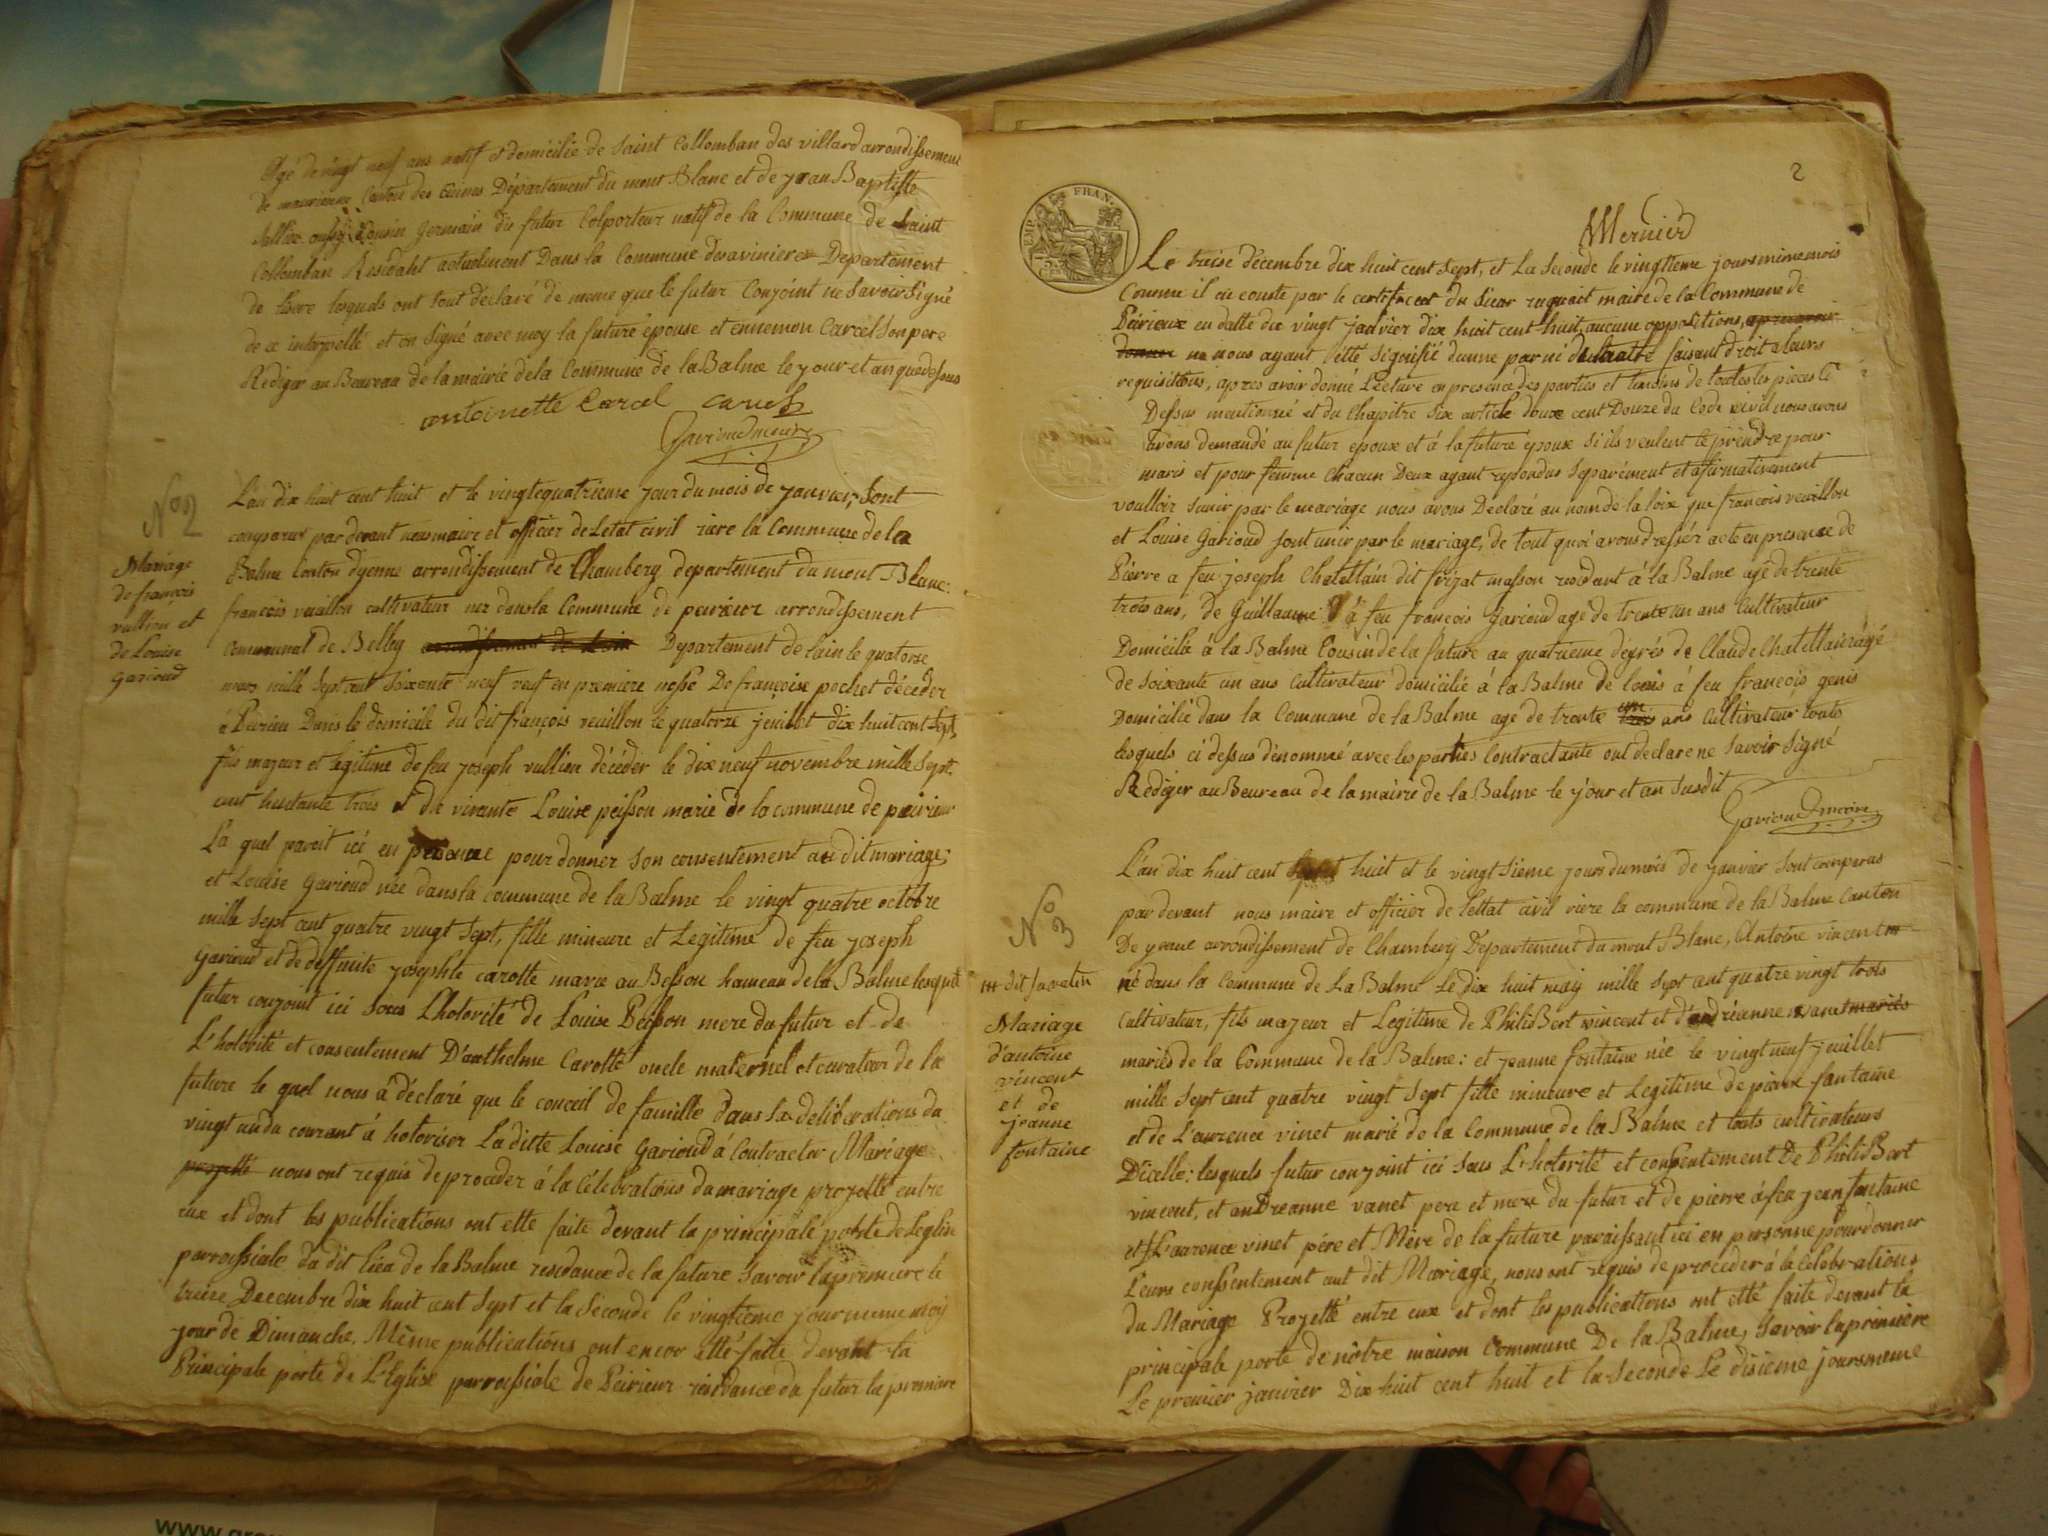 Agé de vingt neuf ans natif et domicilié de Saint Collomban des villard arrondissement
de maurienne Canton des Cuines Département du mont Blanc et de jean Baptiste
aussy Cousin Germain du futur Colporteur natif de la Commune de Saint
Collomban Residaht actuelment Dans la Commune desavinieres Departement
de lisere lesquels ont tout déclaré de meme que le futur Conjoint ne Savoir Signé
de ce interpellé et on Signé avec moy la future épouse et ennemon Carcel Son pere
Rediger au Beureau de la mairie de la Commune de la Balme le your et an que dessus
antoinette Carcel Carcel
Garioud maire
N° 2
Mariage
de françois
vullion et
de Louise
Garioud
L'an dix huit cent huit et le vingtequatrieme jour du mois de janvier, Sont
comparus par devant nous maire et officier de Letat civil de la Commune de la
Balme Canton dyenne arrondissement de Chambery département du mont Blanc:
françois vuillon cultivateur nez dans la Commune de peirieux arrondissement
Communal de Belley Departement de lain le quatorze
mars mille sept cent Soixante neuf veuf en premiere nosse De françoise pochet décéder
à Peirieu Dans le domicile du dit françois veuillon le quatorze jeuillet dix huit cent Sept
fils majeur et legitime de feu joseph vullion décéder le dix neuf novembre mille Sept
cent huitante trois et de vivante Louise peisson marié de la commune de peirieux
La quel paroit ici en presence pour donner Son consentement audit mariage;
et Louise Garioud née dans la commune de la Balme le vingt quatre octobre
mille Sept cent quatre vingt Sept, fille mineure et Legitime de feu joseph
Garioud et de deffunte josephte carotte marie au Besson hameau de la Balme lesquels
futur conjoint ici Sous Lhotorité de Louise Peisson mere du futur et de
L'hotorité et consentement D'anthelme Carotte oncle maternel et curateur de la
future le quel nous à déclaré que le conceil de famille dans Sa deliberations du
vingt undu courant à hotoriser La ditte Louise Garioud à Contracter Mariage
projetté nous ont requis de proceder à la Célebrations du mariage projetté entre
eux et dont les publications ont ette faite devant la principale porte de Leglise
parroissiale du dit lieu de la Balme residance de la future Savoir la premiere le
treize Decembre dix huit cent Sept et la Seconde le vingtieme jour meme moy
jour de Dimanche. Même publications ont encor etté faite devant la
Principale porte de L'Eglise parroissiale de Peirieux residance du futur la premiere
2
EMP FRAN
Mernier
Le treise décembre dix huit cent sept, et La Seconde le vingtieme jours meme mois
Comme il en conste par le certificat du Sieur maire de la Commune de
Peirieux en datte du vingt janvier dix huit cent huit, aucune oppositions,
donner ne nous ayant etté Signifié dunne par ni de lautre faisant droit a leurs
requisitions, apres avoir donné Lecture en presence des parties et temoins de toutes les pieces Ci
Dessus mentionné et du Chapitre Six article deux cent Douze du Code civil nous avons
avons demandé au futur epoux et à la future épouse Si ils veulent Se prendre pour
maris et pour femme Chacun Deux ayant repondus Separément et affirmativement
voulloir Sunir par le mariage nous avons Declaré au nom de la loix que françois veuillon
et Louise Garioud Sont unir par le mariage, de tout quoi avons dresser acte en presense de
Pierre a feu joseph Chatellain dit frizat masson residant à la Balme agé de trente
trois ans, de Guillaume à feu françois Garioud agé de trente un ans Cultivateur
Domicilié à la Balme Cousin de la future au quatrieme degrés de Claude Chatellain agé
de soixante un ans Cultivateur domicilié à la Balme De louis à feu françois genis
Domicilié dans la Commune de la Balme age de trente un ans Cultivateur touts
lesquels ci dessus dénommé avec les parties Contractante ont déclare ne Savoir Signé
Rediger au Beureau de la mairie de la Balme le jour et an Susdit
Garioud maire
N° 3
dit javelin
Mariage
d'antoine
vincent
et de
jeanne
fontaine
L'an dix huit cent huit et le vingt Sixieme jours du mois de janvier Sont comparus
par devant nous maire et officier de l'ettat civil de la commune de la Balme Canton
De yenne arrondissement de Chambery Département du mont Blanc, Antoine vincent
né dans la Commune de La Balme Le dix huit may mille Sept cent quatre vingt trois
Cultivateur, fils majeur et Legitime de Philibert vincent et d'andréanne vanet mariés
mariés de la Commune de la Balme: et jeanne fontaine née le vingt neuf jeuillet
mille Sept cent quatre vingt Sept fille mineure et Legitime de pierre fontaine
et de L'aurence vinet marié de la Commune de la Balme et touts cultivateurs
D'icelle; lesquels futur conjoint ici Sous L'hotorité et consentement De Philibert
vincent, et andreanne vanet pere et mere du futur et de pierre à feu jean fontaine
et L'aurence vinet pére et Mére de la future paraissant ici en personne pour donner
Leurs conssentement aut dit Mariage, nous ont requis de proceder à la Célebrations
du Mariage Projetté entre eux et dont les publications ont etté faite devant la
principale porte de nôtre maison Commune De la Balme, Savoir la premiere
Le premier janvier Dix huit cent huit et la Seconde Le disieme jours meme